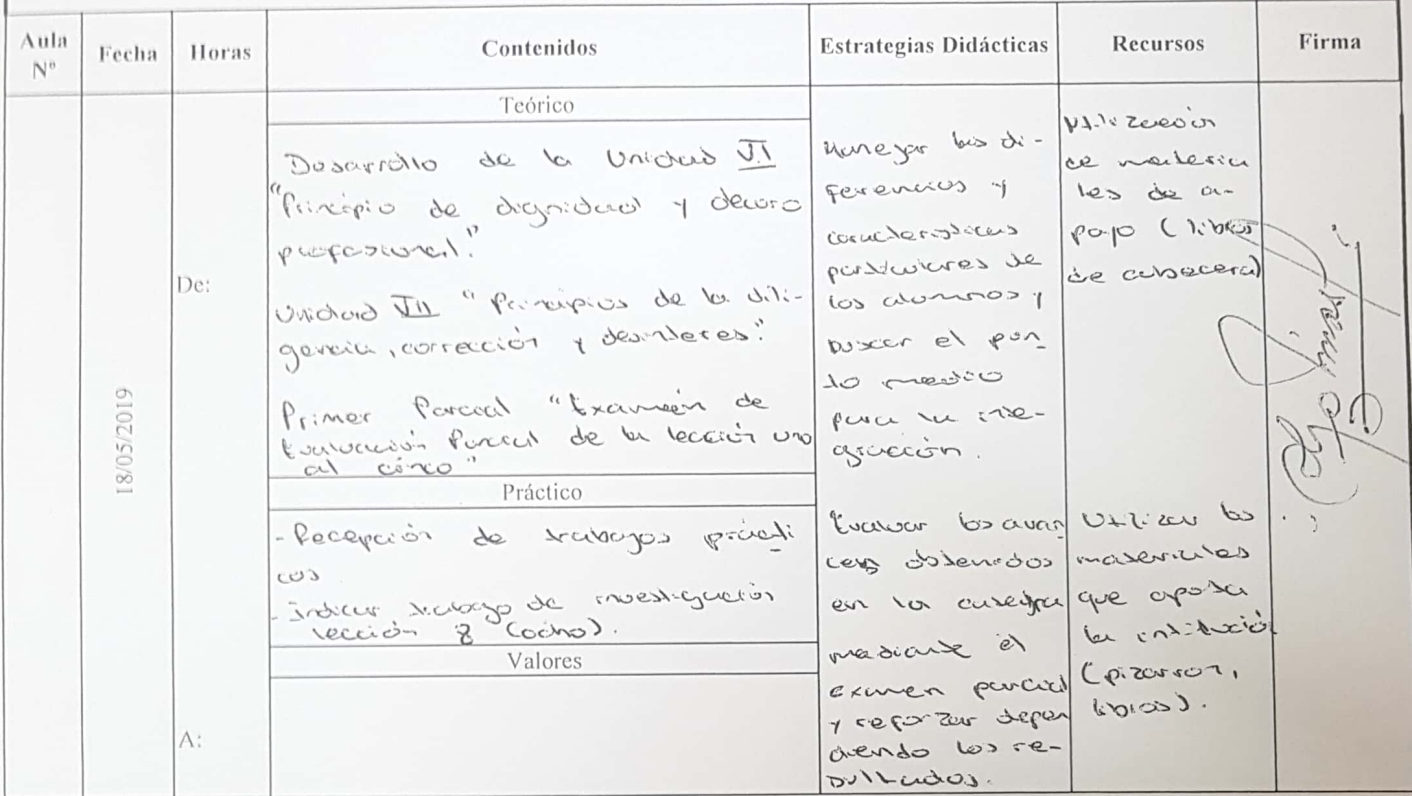 Aula Nº
Fecha
Horas
Contenidos
Estrategias Didácticas
Recursos
Firma
18/05/2019
De:
A:
Teórico
Desarrollo de la Unidad VI
"Principio de dignidad y decoro
profesional."
Unidad VII "Principios de la dili-
gencia, corrección y desinteres."
Primer Parcial "Examen de
Evaluación Parcial de la lección uno
al cinco"
Práctico
- Recepción de trabajos prácti
cos
- Indicar trabajo de investigación
lección 8 (ocho).
Valores
Manejar las di-
ferencias y
características
particulares de
los alumnos y
buscar el pun
to medio
para la inte-
gración.
Evaluar los avan
ces obtenidos
en la catedra
mediante el
examen parcial
y reforzar depen
diendo los re-
sultados.
Utilización
de materia
les de a-
poyo (libros
de cabecera)
Utilizar los
materiales
que aporta
la institució
(pizarron,
libros).